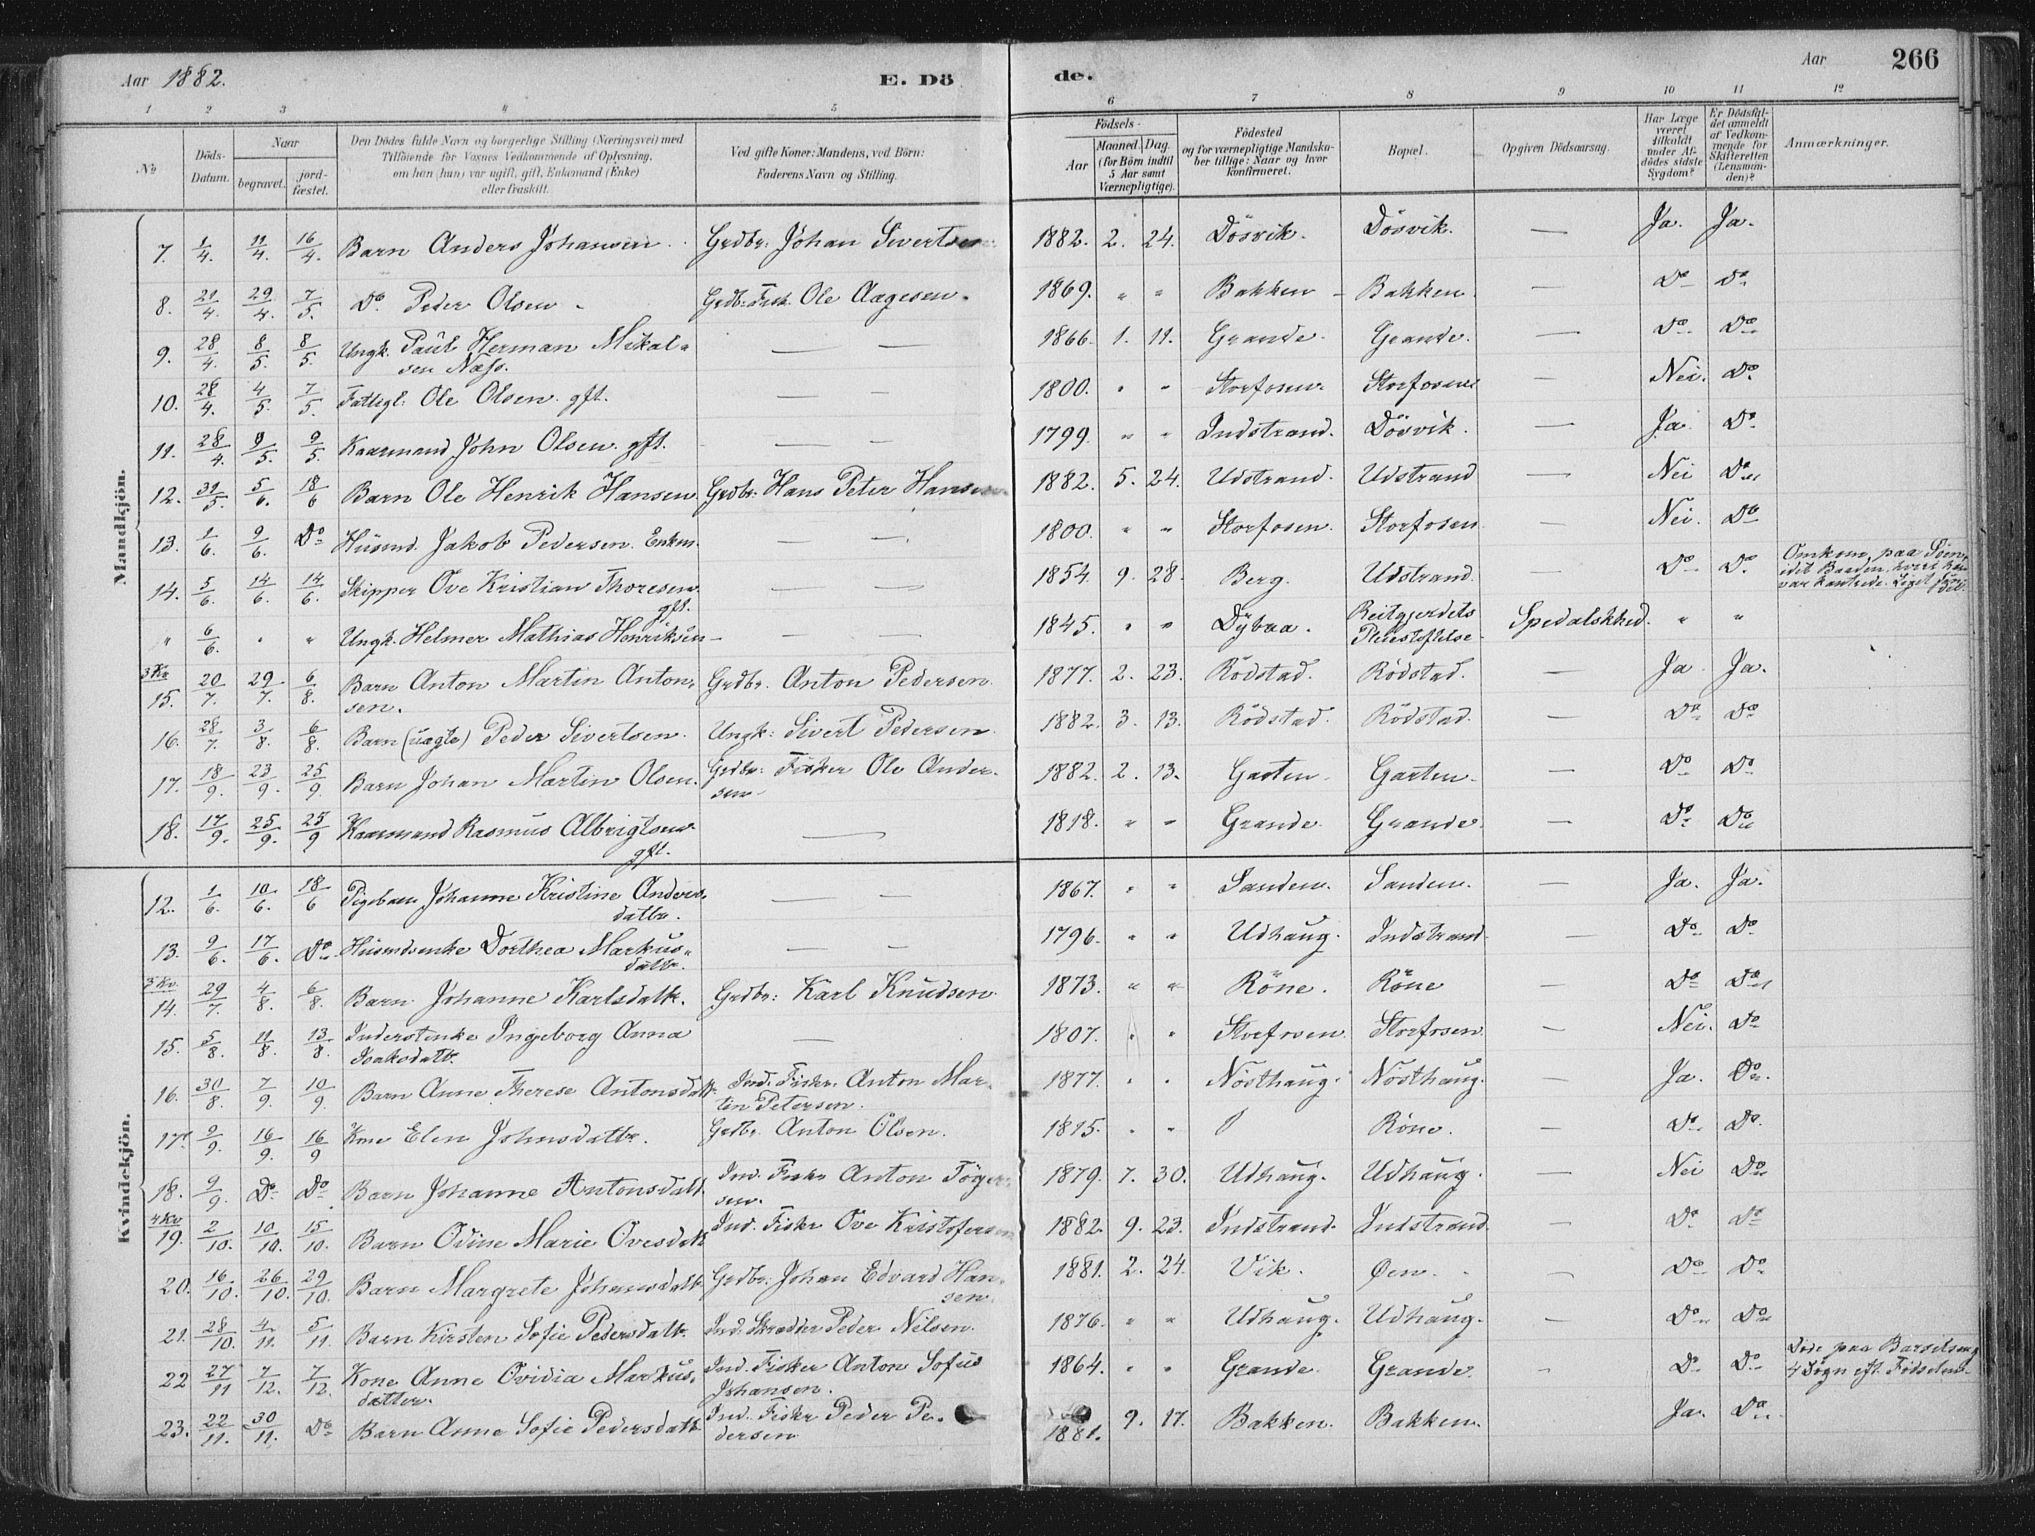 Aar 1882. E. Dö de. Aar 266
1 2 3 4 5 6 7 8 9 10 11 12
No
Döds-Datum.
Naar
begravet.
jord-fæstet.
Den Dödes fulde Navn og borgerlige Stilling (Næringsvei) med
Tilföiende for Voxnes Vedkommende af Oplysning,
om han (hun) var ugift, gift, Enkemand (Enke)
eller fraskilt.
Ved gifte Koner: Mandens, ved Börn:
Faderens Navn og Stilling.
Födsels-
Aar
Maaned. Dag.
(for Börn indtil
5 Aar samt
Værnepligtige).
Födested
og for værnepligtige Mandska-
ber tillige: Naar og hvor
konfirmeret.
Bopæl.
Opgiven Dödsaarsag.
Har Læge
været
tilkaldt
under Af-
dödes sidste
Sygdom?
Er Dödsfal-
det anmeldt
af Vedkom-
mende for
Skifteretten
(Lensman-
den)?
Anmærkninger.
Mandkjön.
7. 1/4. 11/4. 16/4. Barn Anders Johansen. Grdbr. Johan Sivertsen 1882. 2. 24. Dösvik. Dösvik. — Ja. Ja.
8. 21/4. 29/4. 7/5. Do. Peder Olsen Grdb. Fisk. Ole Aagesen. 1869. " " Bakken Bakken. — Do Do
9. 28/4 8/5. 8/5. Ungk. Paul Herman Mikal-
sen Næss. — — 1866. 1. 11. Grande. Grande. — Do Do
10. 28/4. 4/5. 7/5. Fattigl. Ole Olsen gft. — — 1800. " " Storfosen. Storfosen — Nei. Do
11. 28/4. 9/5. 9/5. Kaarmand John Olsen gft. — — 1799. " " Indstrand. Dösvik. — Ja. Do
12. 31/5. 5/6. 18/6 Barn Ole Henrik Hansen. Grdbr. Hans Peter Hansen 1882. 5. 24. Udstrand. Udstrand — Nei Do
13. 1/6. 9/6. Do Husmd. Jakob Pedersen. Enkm. — — 1800. " " Storfosen. Storfosen — Nei. Do
14. 5/6. 14/6. 14/6. Skipper Ove Kristian Thoresen.
gft. — — 1854. 9. 28. Berg. Udstrand. — Do Do Omkom paa Söen,
idet Baaden, hvori han
var kantrede. Liget
" 6/6. " " Ungk. Helmer Mathias Henriksen — — 1845. " " Dybaa. Reitgjerdets
Pleiestiftelse Spedalskhed. " "
3 Kv
15. 20/7. 29/7. 6/8. Barn Anton Martin Anton-
sen. Grdbr. Anton Pedersen. 1877. 2. 23. Rödstad. Rödstad. — Ja Ja.
16. 28/7. 3/8. 6/8. Barn (uægte) Peder Sivertsen. Ungk: Sivert Pedersen 1882. 3. 13. Rödstad. Rödstad. — Do Do
17. 18/9. 23/9. 25/9. Barn Johan Martin Olsen. Grdbr. Fisker Ole Ander-
sen 1882. 2. 13. Garten. Garten. — Do Do
18. 17/9. 25/9. 25/9 Kaarmand Rasmus Albrigtsen
gft. — 1818. " " Grande. Grande. — Do Do
Kvindekjön.
12. 1/6. 10/6. 18/6 Pigebarn Johanne Kristine Anders-
datter. — — 1867. " " Sanden. Sanden. — Ja. Ja.
13. 9/6. 17/6. Do Husmdsenke Dorthea Markus-
datter. — — 1796. " " Udhaug. Indstrand — Do Do
3 Kv.
14. 29/7. 4/8. 6/8. Barn Johanne Karlsdatt. Grdbr: Karl Knudsen 1873. " " Röne. Röne — Do Do
15. 5/8. 11/8. 13/8. Inderstenke Ingeborg Anna
Isaksdatter. — 1807. " " Storfosen. Storfosen. — Nei. Do
16. 30/8. 7/9. 10/9. Barn Anne Therese Antonsdatt. Ind. Fisker Anton Mar-
tin Petersen. 1877. " " Nösthaug. Nösthaug. — Ja. Do
17. 9/9. 16/9. 16/9 Kone Elen Johnsdatter. Grdbr. Anton Olsen. 1815. " " Röne. — Do Do
18. 9/9. Do Do Barn Johanne Antonsdatt. Ind. Fisker Anton Töger-
sen. 1879. 7. 30. Udhaug. Udhaug. — Nei Do
4 Kv
19. 2/10. 10/10. 15/10. Barn Odine Marie Ovesdatt Ind. Fisker Ove Kristofersen 1882. 9. 23. Indstrand. Indstrand. — Do Do
20. 16/10. 26/10. 29/10. Barn Margrete Johansdatt. Grdbr. Johan Edvard Han-
sen. 1881. 2. 24. Vik. Öen. — Do Do
21. 28/10. 4/11. 5/11. Barn Kirsten Sofie Pedersdatt. Ind. Skrædder Peder Nilsen. 1876. " " Udhaug. Udhaug. — Do Do
22 27/11 7/12. 7/12. Kone Anne Ovidia Markus-
datter. Ind. Fisker Anton Sofus
Johansen. 1864. " " Grande. Grande. — Do Do Döde paa Barselseng
4 Dögn eft. Födselens
23. 22/11. 30/11. Do Barn Anne Sofie Pedersdatt. Ind. Fisker Peder Pe-
dersen 1881. 9. 17. Bakken. Bakken. Ja. Do